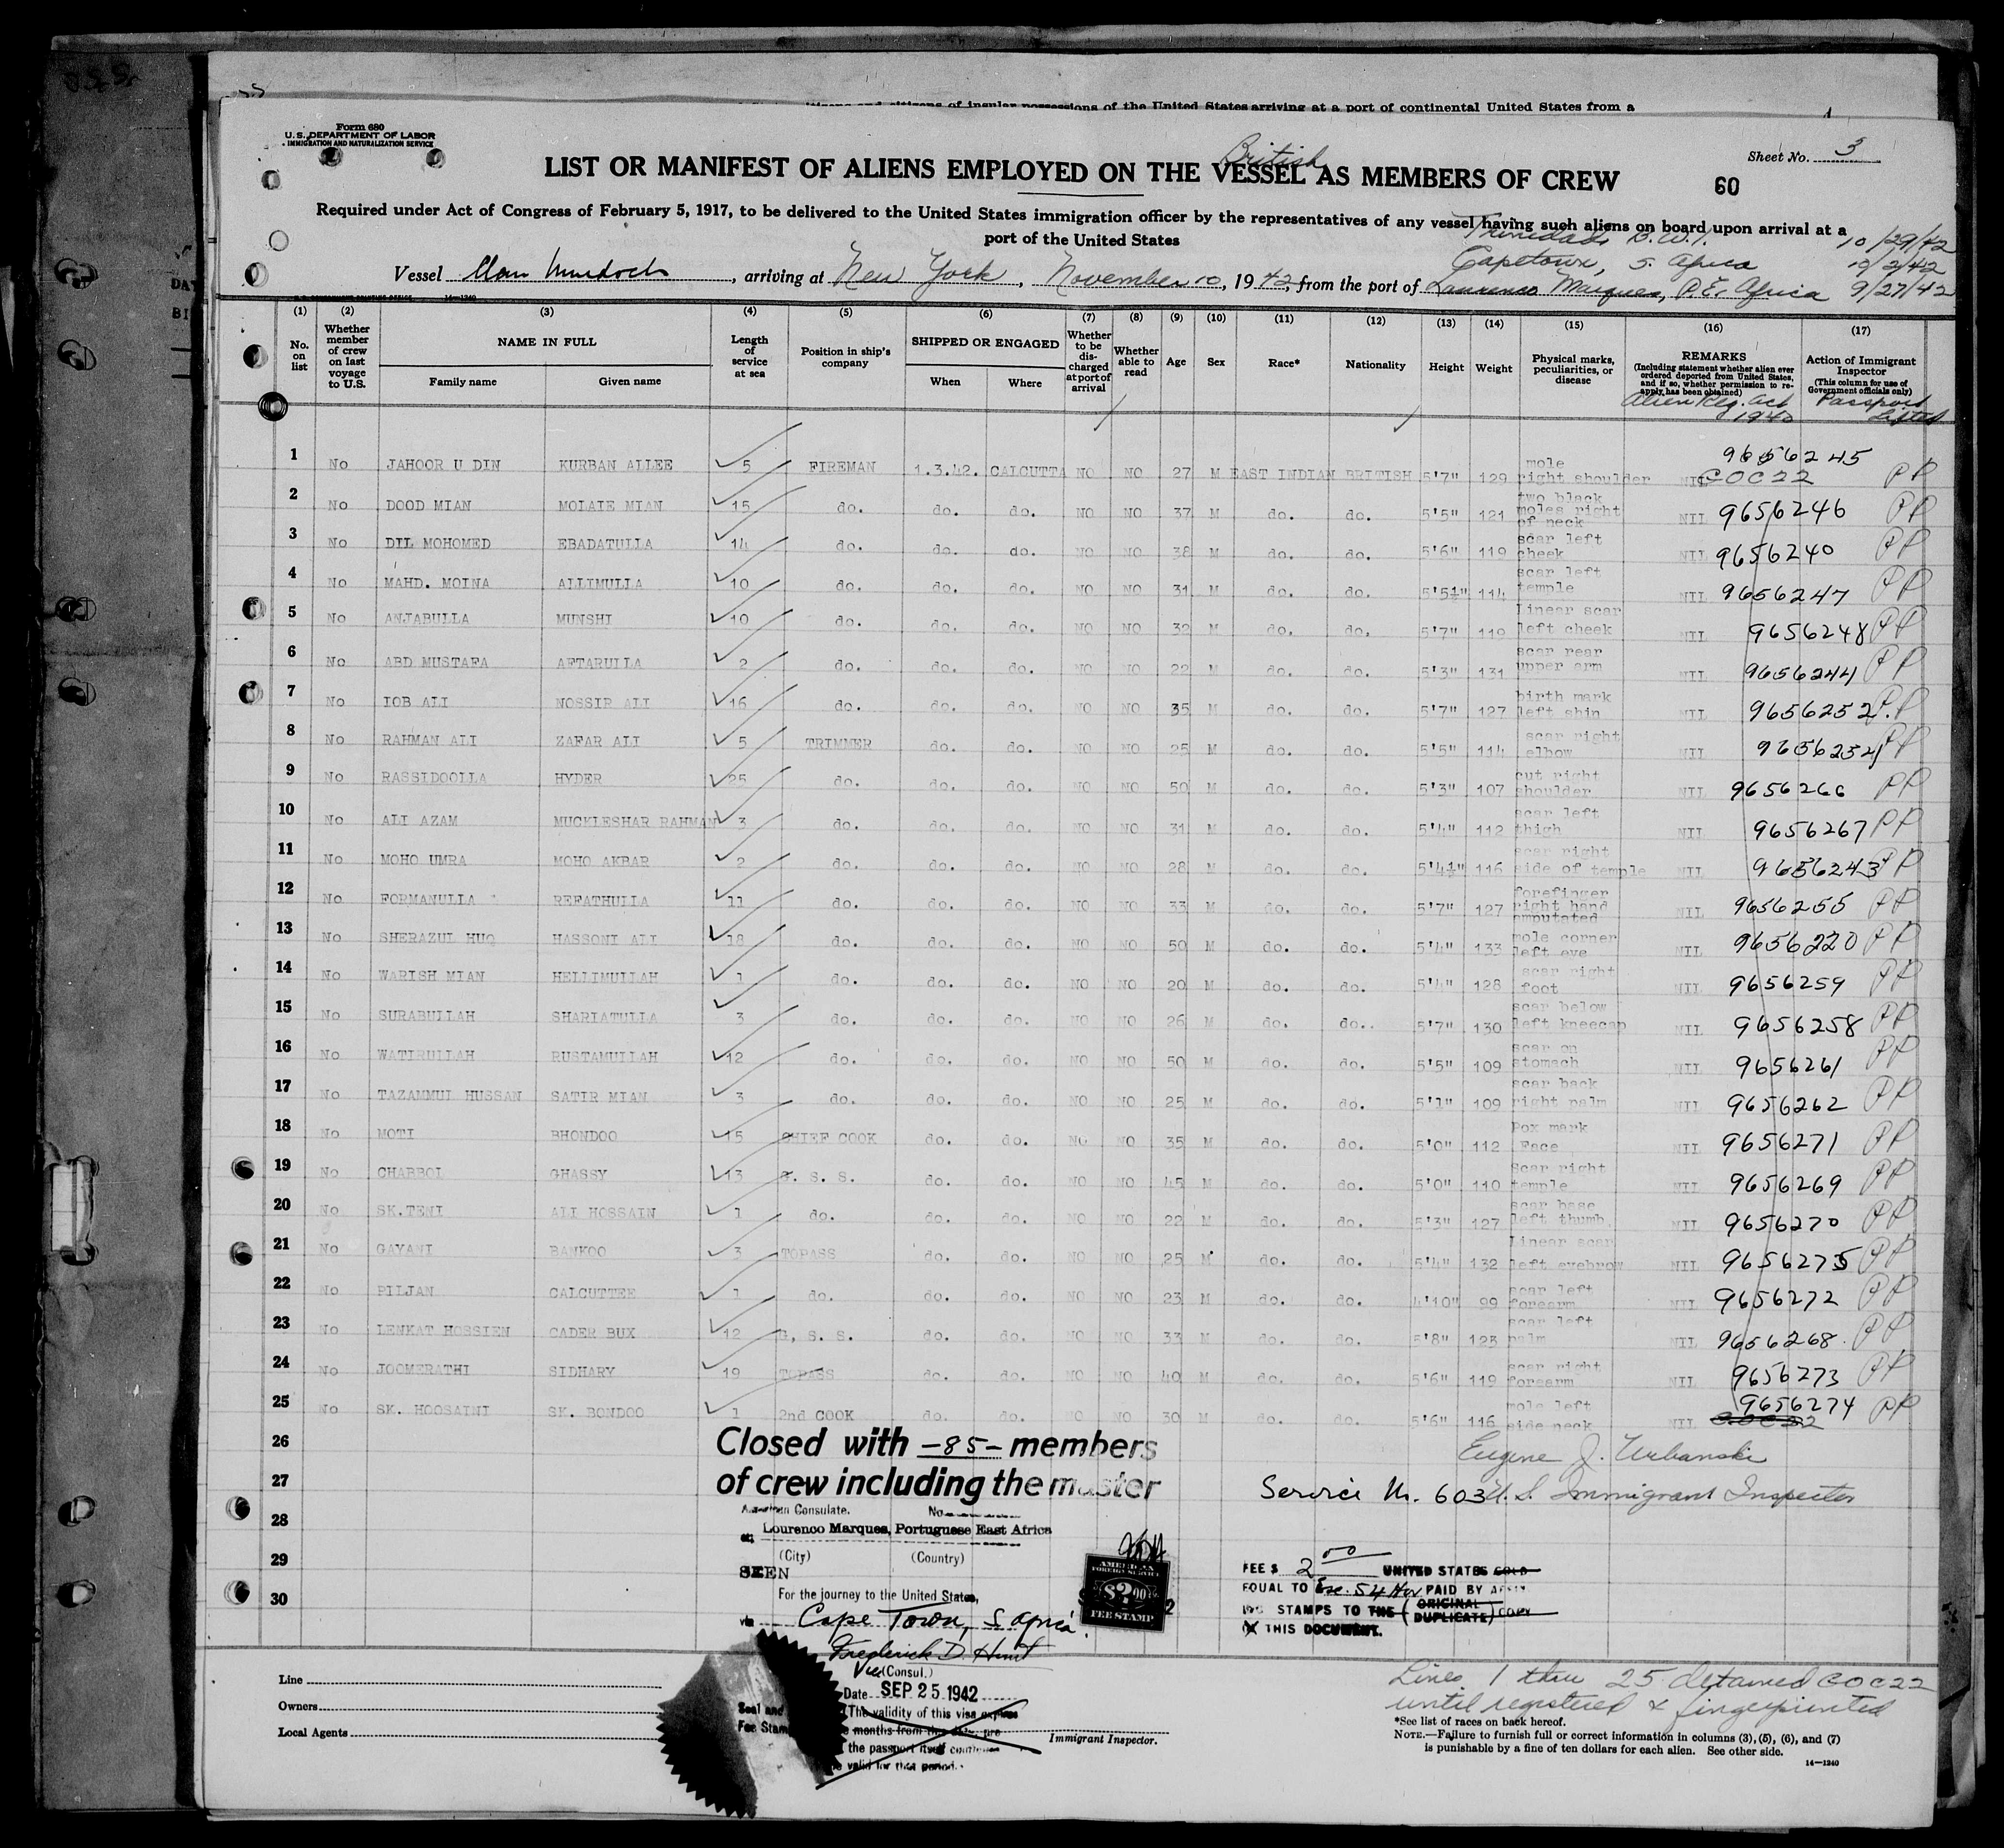 Form 680
U.S. DEPARTMENT OF LABOR
IMMIGRATION AND NATURALIZATION SERVICE
citizens and citizens of insular possessions of the United States arriving at a port of continental United States from a
British
Sheet No. 3
LIST OR MANIFEST OF ALIENS EMPLOYED ON THE VESSEL AS MEMBERS OF CREW
60
Required under Act of Congress of February 5, 1917, to be delivered to the United States immigration officer by the representatives of any vessel having such aliens on board upon arrival at a
port of the United States
Trinidad, B.W.I. 10/29/42
Capetown, S. Africa 10/2/42
Vessel Clan Murdoch, arriving at New York, November 10, 1942, from the port of Laurenco Marques, P.E. Africa 9/27/42
(1) (2) (3) (4) (5) (6) (7) (8) (9) (10) (11) (12) (13) (14) (15) (16) (17)
No. on list
Whether member of crew on last voyage to U.S.
NAME IN FULL
Family name
Given name
Length of service at sea
Position in ship's company
SHIPPED OR ENGAGED
When
Where
Whether to be discharged at port of arrival
Whether able to read
Age
Sex
Race*
Nationality
Height
Weight
Physical marks, peculiarities, or disease
REMARKS
(Including statement whether alien ever ordered deported from United States, and if so, whether permission to reapply has been obtained)
Alien Reg. Act 1940
Action of Immigrant Inspector
(This column for use of Government officials only)
Passport Listed
1 No JAHOOR U DIN KURBAN ALLEE 5 FIREMAN 1.3.42. CALCUTTA NO NO 27 M EAST INDIAN BRITISH 5'7" 129 mole right shoulder NIL 9656245 COC22 PP
2 No DOOD MIAN MOLAIE MIAN 15 do. do. do. NO NO 37 M do. do. 5'5" 121 two black moles right of neck NIL 9656246 PP
3 No DIL MOHOMED EBADATULLA 14 do. do. do. NO NO 38 M do. do. 5'6" 119 scar left cheek NIL 9656240 PP
4 No MAHD. MOINA ALLIMULLA 10 do. do. do. NO NO 31 M do. do. 5'5½" 114 scar left temple NIL 9656247 PP
5 No ANJABULLA MUNSHI 10 do. do. do. NO NO 32 M do. do. 5'7" 119 linear scar left cheek NIL 9656248 PP
6 No ABD MUSTAFA AFTARULLA 2 do. do. do. NO NO 22 M do. do. 5'3" 131 scar rear upper arm NIL 9656244 PP
7 No IOB ALI NOSSIR ALI 16 do. do. do. NO NO 35 M do. do. 5'7" 127 birth mark left shin NIL 9656252 P.P
8 No RAHMAN ALI ZAFAR ALI 5 TRIMMER do. do. NO NO 25 M do. do. 5'5" 114 scar right elbow NIL 9656254 PP
9 No RASSIDOOLLA HYDER 25 do. do. do. NO NO 50 M do. do. 5'3" 107 cut right shoulder NIL 9656266 PP
10 No ALI AZAM MUCKLESHAR RAHMAN 3 do. do. do. NO NO 31 M do. do. 5'4" 112 scar left thigh NIL 9656267 PP
11 No MOHO UMRA MOHO AKBAR 2 do. do. do. NO NO 28 M do. do. 5'4½" 116 scar right side of temple NIL 9656243 PP
12 No FORMANULLA REFATHULLA 11 do. do. do. NO NO 33 M do. do. 5'7" 127 forefinger right hand amputated NIL 9656255 PP
13 No SHERAZUL HUQ HASSONI ALI 18 do. do. do. NO NO 50 M do. do. 5'4" 133 mole corner left eye NIL 9656220 PP
14 No WARISH MIAN HELLIMULLAH 1 do. do. do. NO NO 20 M do. do. 5'4" 128 scar right foot NIL 9656259 PP
15 No SURABULLAH SHARIATULLA 3 do. do. do. NO NO 26 M do. do.. 5'7" 130 scar below left kneecap NIL 9656258 PP
16 No WATIRULLAH RUSTAMULLAH 12 do. do. do. NO NO 50 M do. do. 5'5" 109 scar on stomach NIL 9656261 PP
17 No TAZAMMUL HUSSAN SATIR MIAN 3 do. do. do. NO NO 25 M do. do. 5'1" 109 scar back right palm NIL 9656262 PP
18 No MOTI BHONDOO 15 CHIEF COOK do. do. NO NO 35 M do. do. 5'0" 112 Pox mark Face NIL 9656271 PP
19 No CHABBOL GHASSY 13 G. S. S. do. do. NO NO 45 M do. do. 5'0" 110 Scar right temple NIL 9656269 PP
20 No SK.TENI ALI HOSSAIN 1 do. do. do. NO NO 22 M do. do. 5'3" 127 scar base left thumb. NIL 9656270 PP
21 No GAYANI BANKOO 3 TOPASS do. do. NO NO 25 M do. do. 5'4" 132 linear scar left eyebrow NIL 9656275 PP
22 No PILJAN CALCUTTEE 1 do. do. do. NO NO 23 M do. do. 4'10" 99 scar left forearm NIL 9656272 PP
23 No LENKAT HOSSIEN CADER BUX 12 G, S. S. do. do. NO NO 33 M do. do. 5'8" 123 scar left palm NIL 9656268. PP
24 No JOOMERATHI SIDHARY 19 TOPASS do. do. NO NO 40 M do. do. 5'6" 119 scar right forearm NIL 9656273 PP
25 No SK. HOOSAINI SK. BONDOO 1 2nd COOK do. do. NO NO 30 M do. do. 5'6" 116 mole left side neck NIL 9656274 COC22 PP
26
27
28
29
30
Closed with -85- members
of crew including the master
Eugene J. Urbanski
U.S. Immigrant Inspector
Service No. 603
American Consulate. No
at Lourenco Marques, Portuguese East Africa
(City) (Country)
SEEN
For the journey to the United States,
via Cape Town, S. Africa.
Frederick D. Hunt
Vice (Consul.)
Date SEP 25 1942
The validity of this visa expires
months from this date, pro
the passport itself continues
valid for that period.
Seal and
Fee Stamp
AMERICAN
FOREIGN SERVICE
$2.00
FEE STAMP
FEE $ 2 00 UNITED STATES GOLD
EQUAL TO Esc. 54 PAID BY
STAMPS TO THE (ORIGINAL DUPLICATE) COPY
THIS DOCUMENT.
Line
Owners
Local Agents
Immigrant Inspector.
Lines 1 thru 25 detained COC22
until registered & fingerprinted
*See list of races on back hereof.
NOTE.—Failure to furnish full or correct information in columns (3), (5), (6), and (7)
is punishable by a fine of ten dollars for each alien. See other side.
14—1240